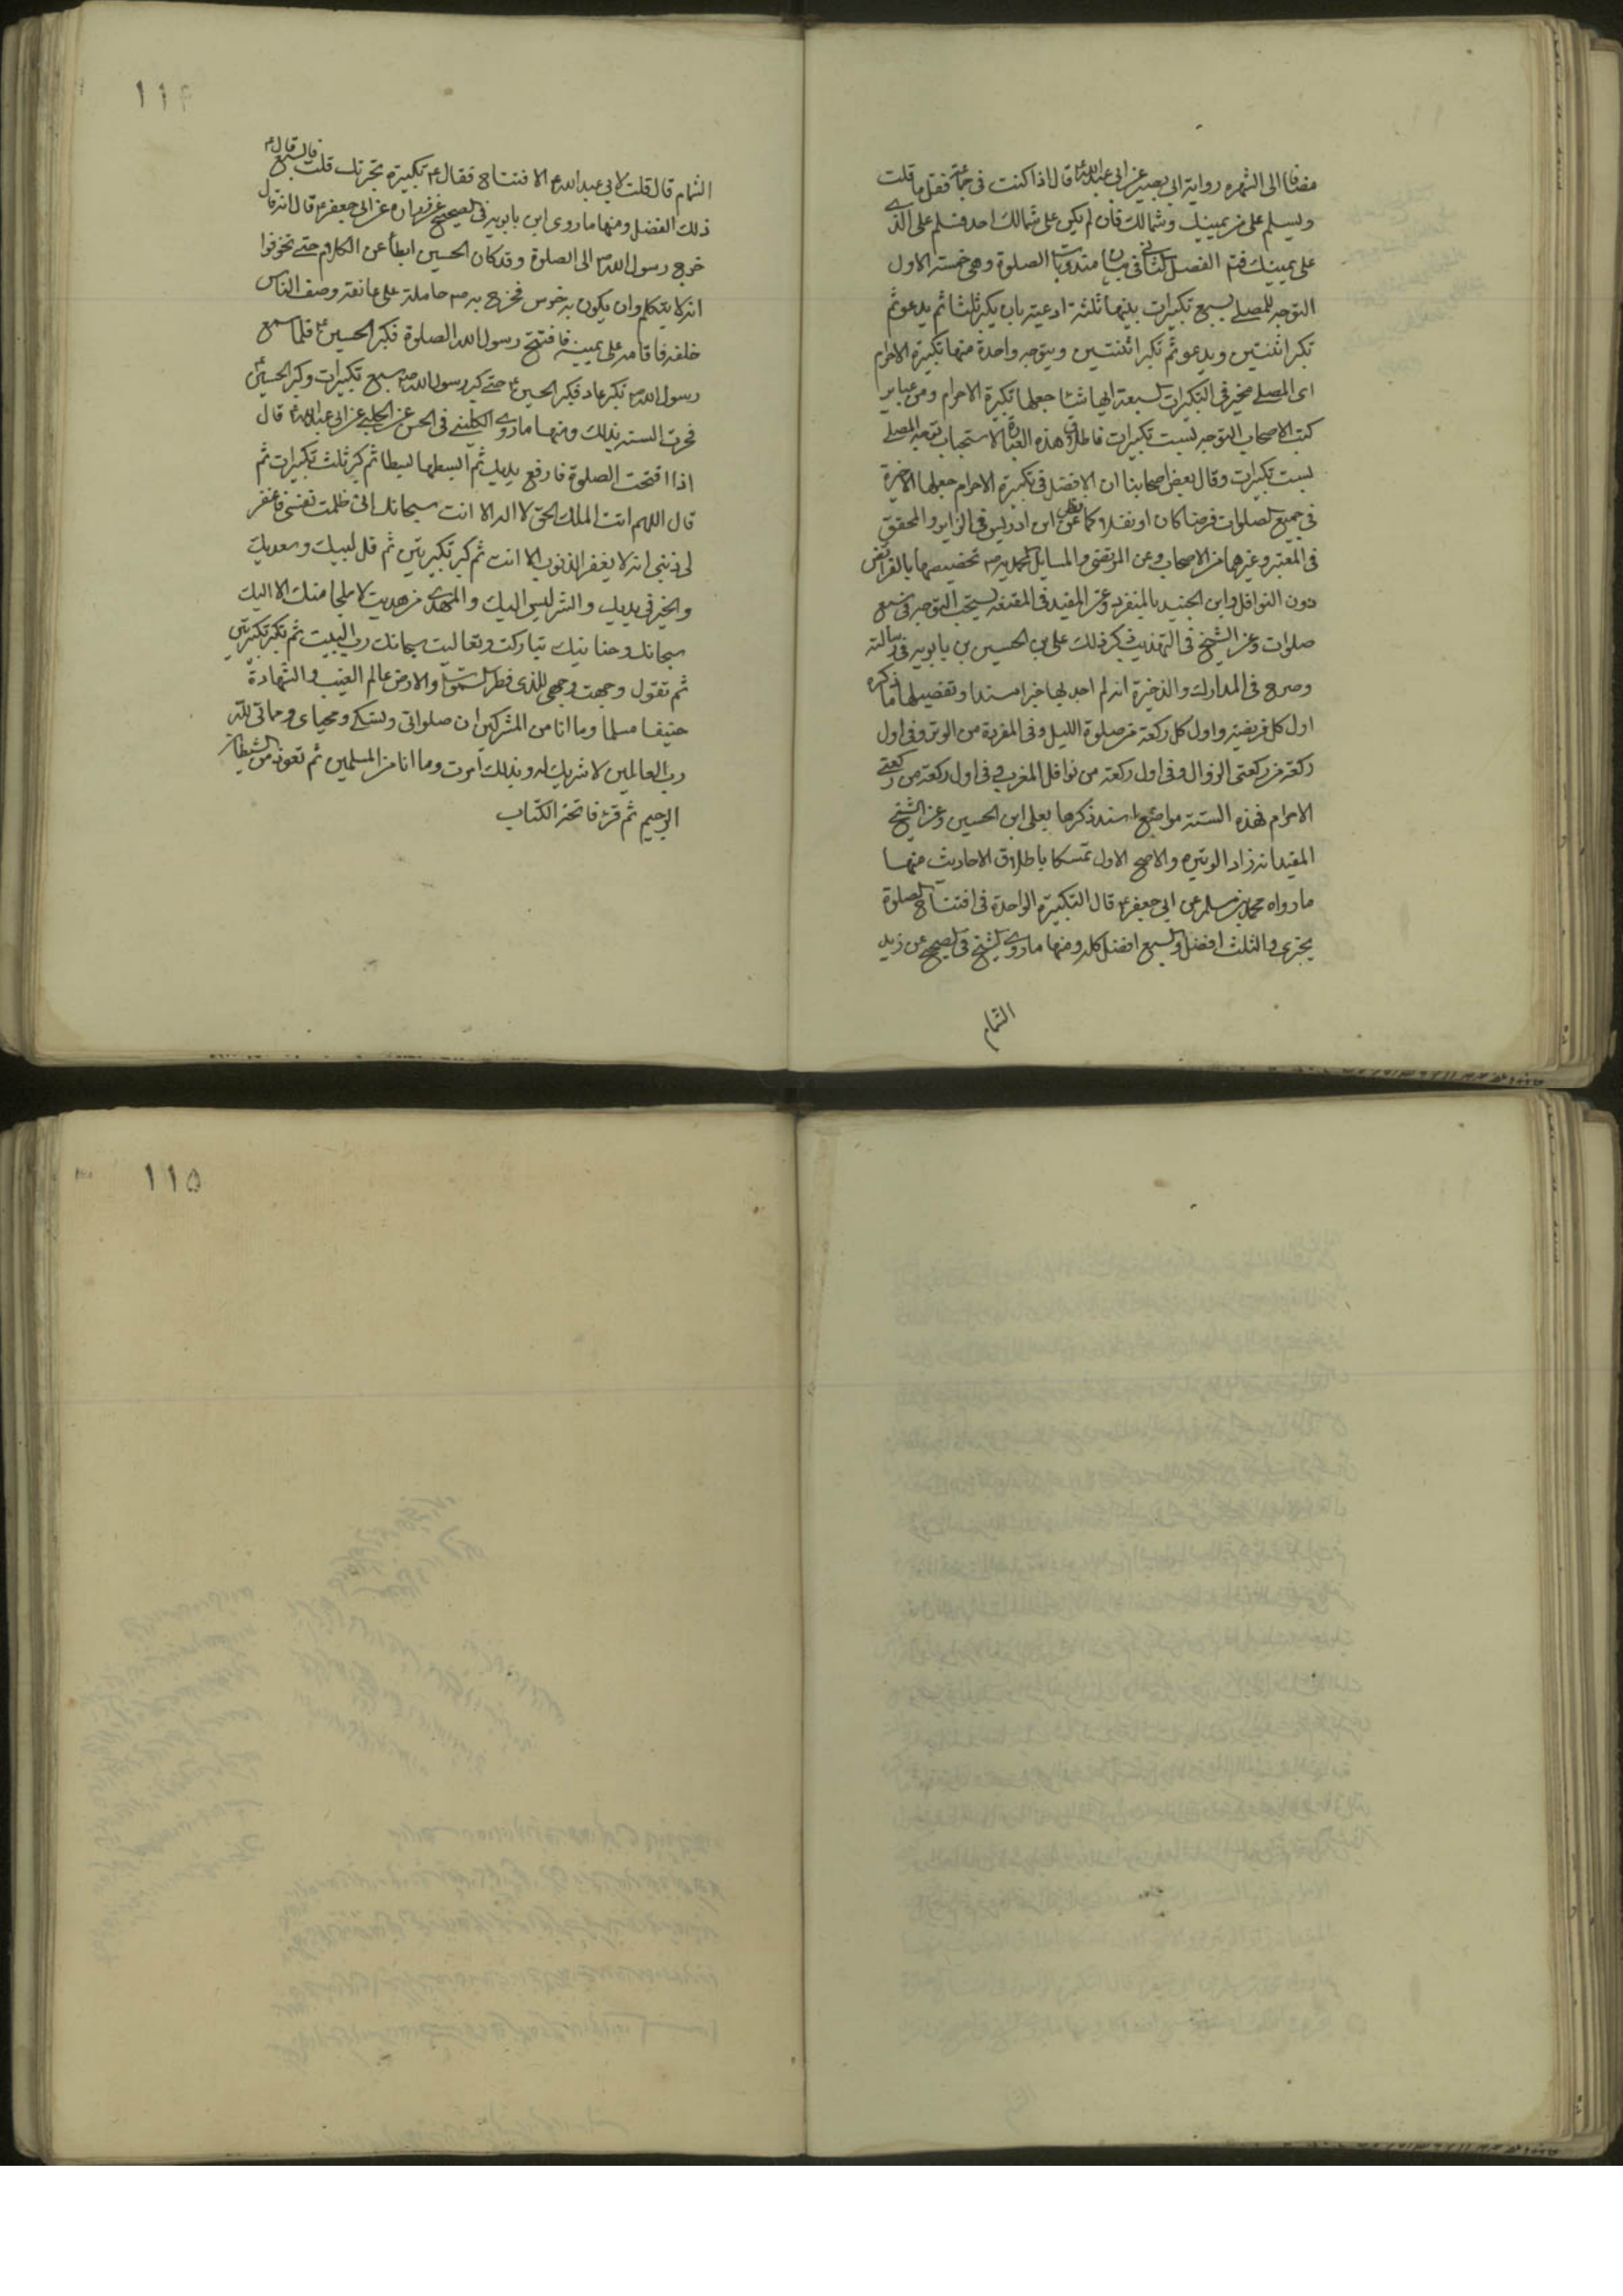 مضافا الى الشهره رواية ابى بصير عن ابى عبدالله ع قال اذا كنت فى جماعة فقل ما قلت
وليسلم على من يمينك وشمالك فان لم يكن على شمالك احد فسلم على الذى
على يمينك فتم الفصل الثانى فى بيان مندوبات الصلوة وهى خمسة الاول
التوجه للمصلى بسبع تكبيرات بينها ثلثة ادعية بان يكبر ثلثا ثم يدعو ثم
تكبر اثنتين ويدعو ثم تكبر اثنتين ويتوجه واحدة منها تكبيرة الاحرام
اى المصلى مخير فى التكبيرات السبعة ايها شاء جعلها تكبيرة الاحرام ومن عباير
كتب الاصحاب التوجه بست تكبيرات فاطلاق هذه العبارة الاستحباب بتوجه المصلى
بست تكبيرات وقال بعض اصحابنا ان الافضل فى تكبيرة الاحرام جعلها الاخيرة
فى جميع الصلوات فرضا كان او نفلا كما عن ابن ادريس فى السراير والمحقق
فى المعتبر وغيرهما من الاصحاب وعن المرتضى والمسايل المحمديه تخصيصها بالفرائض
دون النوافل وابن الجنيد بالمنفرد وعن المفيد فى المقنعة يستحب التوجه فى سبع
صلوات وعن الشيخ فى التهذيب ذكر ذلك على بن الحسين بن بابويه فى رسالته
وصرح فى المدارك والذخيرة انه لم اجد بها خبرا مسندا وتفصيلها ما ذكره
اول كل فريضة واول كل ركعة من صلوة الليل وفى المفردة من الوتر وفى اول
ركعة من ركعتى الزوال وفى اول ركعة من نوافل المغرب وفى اول ركعة من ركعتى
الاحرام فهذه الستة مواضع اسند ذكرها بعلى ابن الحسين وعن الشيخ
المفيد انه زاد الوتيره والاصح الاول تمسكا باطلاق الاحاديث منها
ما رواه محمد بن مسلم عن ابى جعفر ع قال التكبيرة الواحدة فى افتتاح الصلوة
يجزى والثلث افضل والسبع افضل كله ومنها ما روى الشيخ فى الصحيح عن زيد
الشحام
١١٤
الشحام قال قلت لابى عبدالله ع الافتتاح فقال ع تكبيرة تجزئك قلت فالسبع قال ع
ذلك الفضل ومنها ما روى ابن بابويه فى الصحيح عن زراره عن ابى جعفر ع قال انه قال
خرج رسول الله ص الى الصلوة وقد كان الحسين ابطأ عن الكلام حتى تخوفوا
انه لا يتكلم وان يكون به خرس فخرج به ص حامله على عاتقه وصف الناس
خلفه فاقامه على يمينه فافتتح رسول الله الصلوة فكبر الحسين ع فلما سمع
رسول الله ص تكبيره عاد فكبر الحسين ع حتى كبر رسول الله ص سبع تكبيرات وكبر الحسين ع
فجرت السنة بذلك ومنها ما روى الكلينى فى الحسن عن الحلبى عن ابى عبدالله ع قال
اذا افتحت الصلوة فارفع يديك ثم ابسطها بسطا ثم كبر ثلث تكبيرات ثم
قال اللهم انت الملك الحق لا اله الا انت سبحانك انى ظلمت نفسى فاغفر
لى ذنبى انه لا يغفر الذنوب الا انت ثم كبر تكبيرتين ثم قل لبيك وسعديك
والخير فى يديك والشر ليس اليك والمهدى من هديت لا ملجا منك الا اليك
سبحانك وحنانيك تباركت وتعاليت سبحانك رب البيت ثم تكبر تكبيرتين
ثم تقول وجهت وجهى للذى فطر السموات والارض عالم الغيب والشهادة
حنيفا مسلما وما انا من المشركين ان صلواتى ونسكى ومحياى ومماتى لله
رب العالمين لا شريك له وبذلك امرت وما انا من المسلمين ثم تعوذ من الشيطان
الرجيم ثم قرء فاتحة الكتاب
١١٥